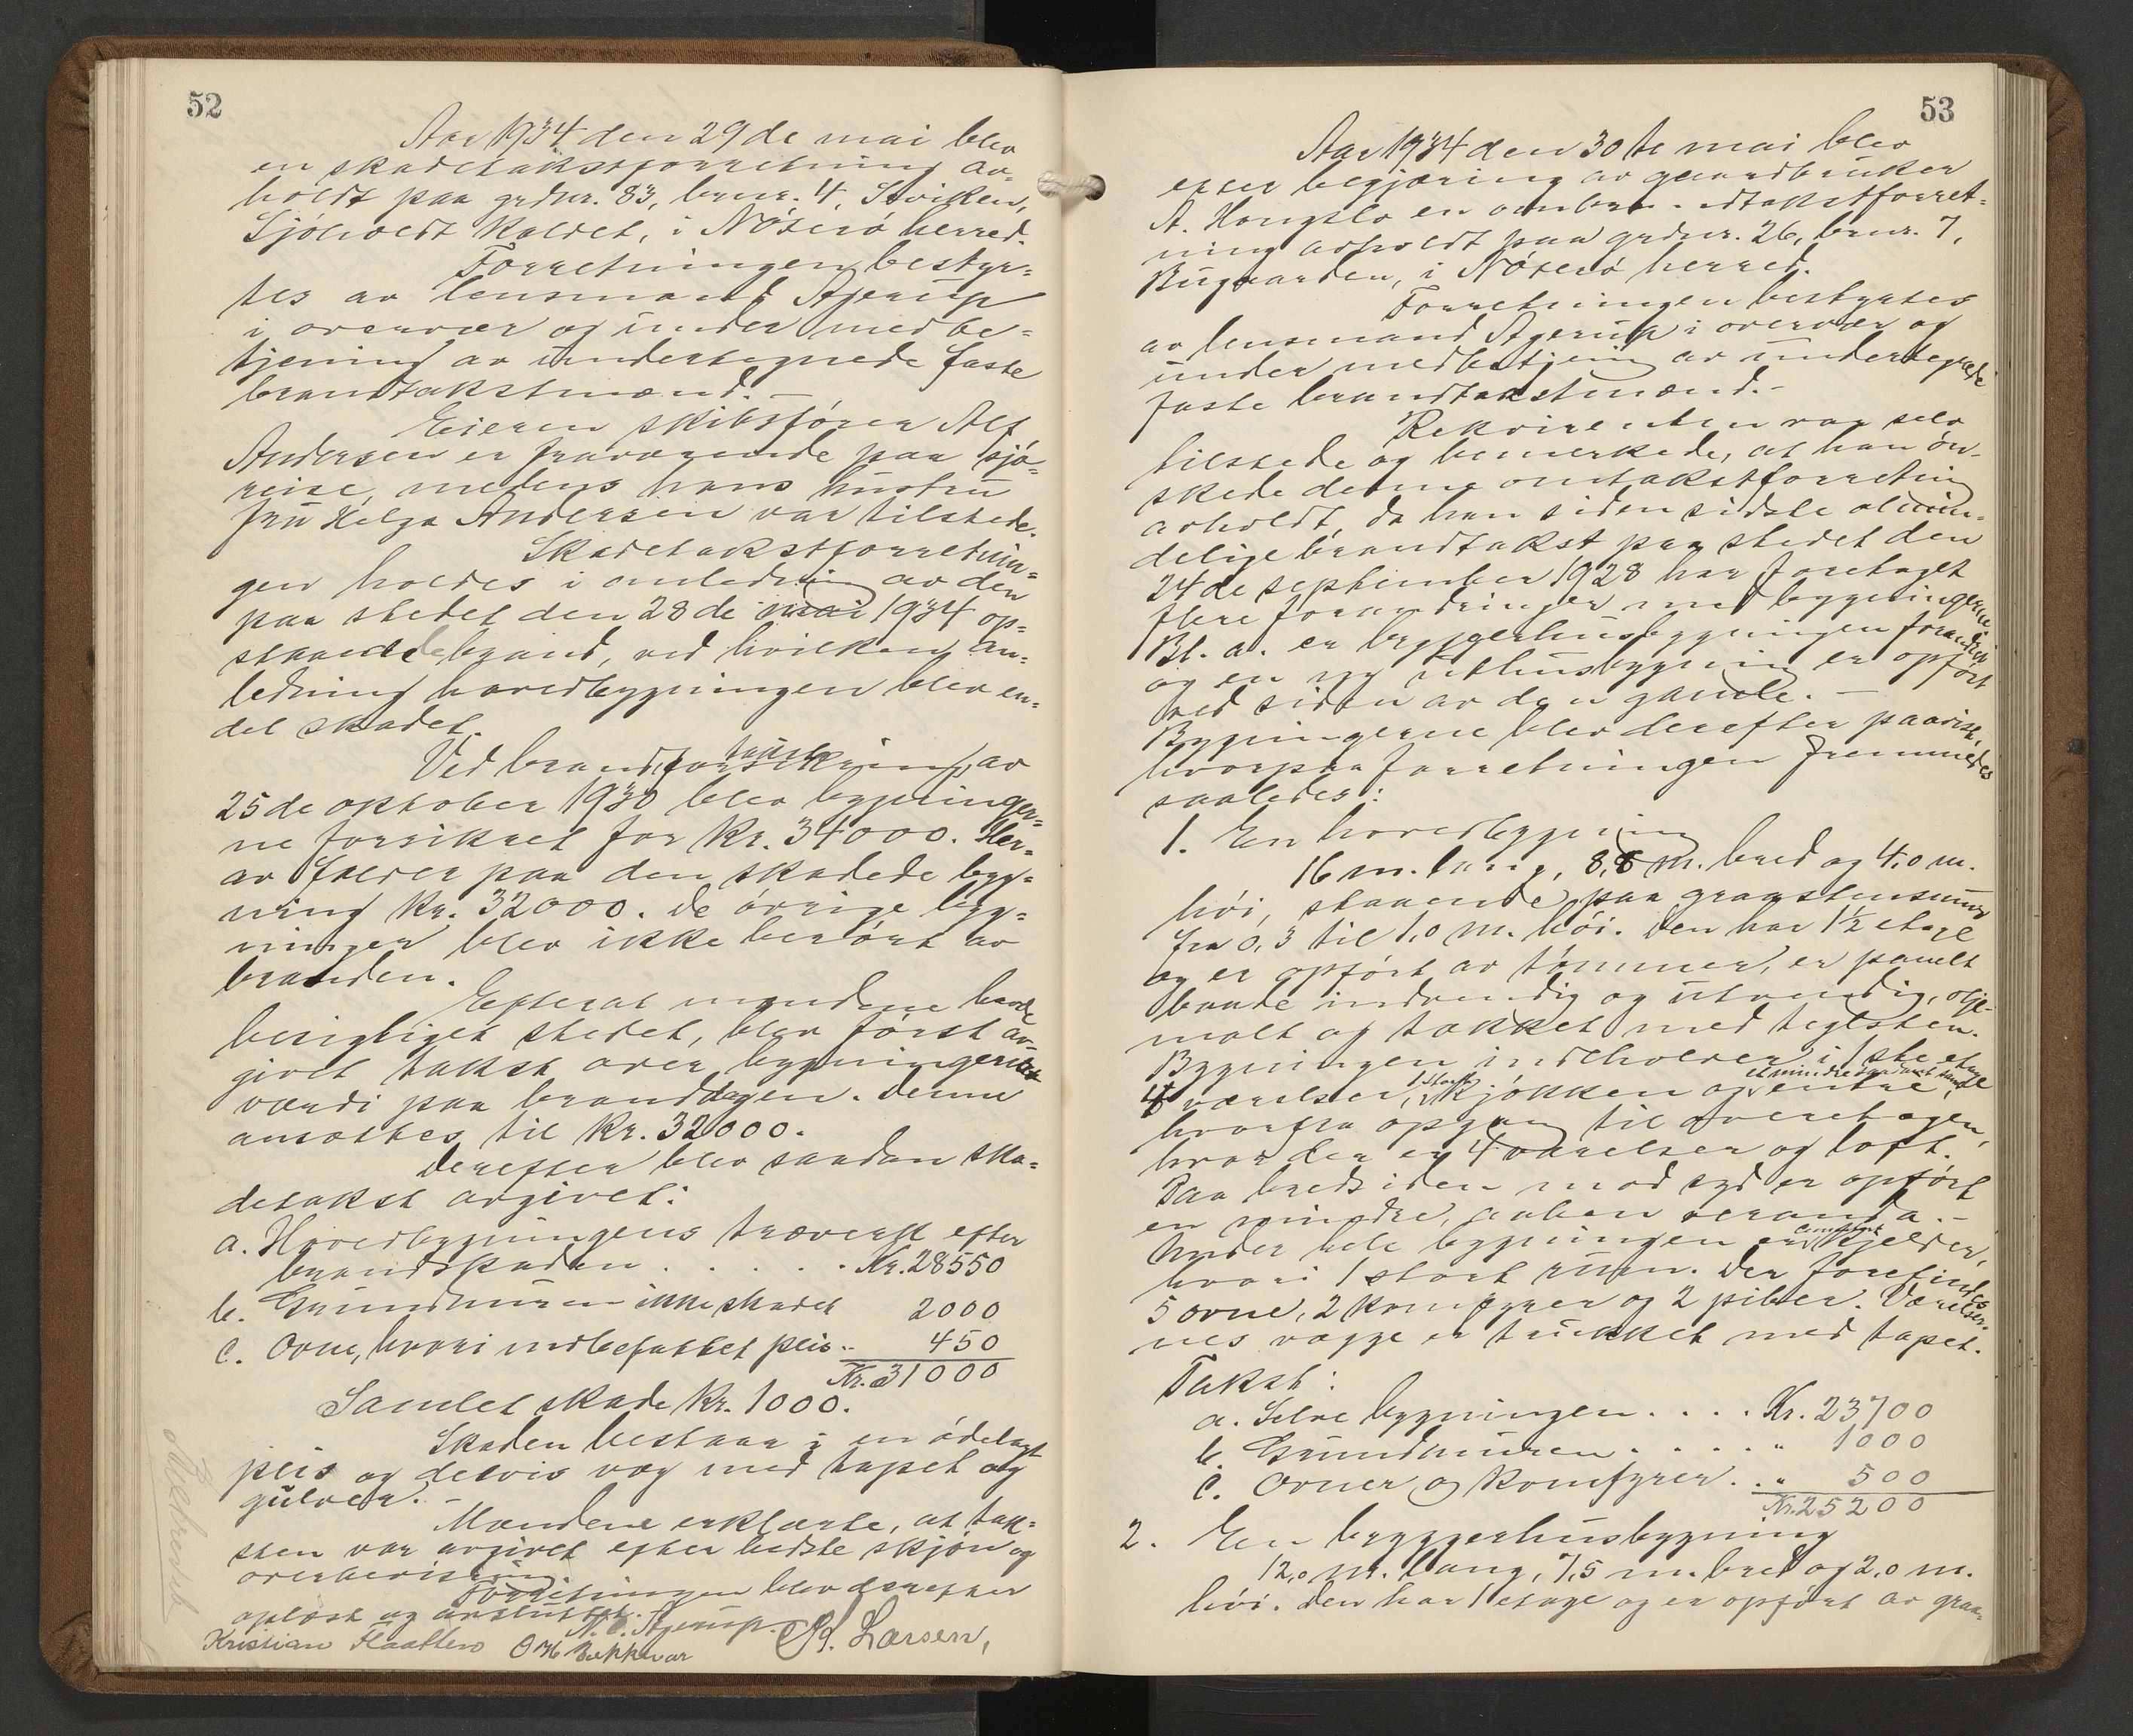 52
Aar 1934 den 29de mai blev
en skadetakstforretning av-
holdt paa grdnr. 83, brnr. 4,
Sjöholdt kaldet, i Nöterö herred.
Forretningen bestyr-
tes av lensmand Agerup
i overvær og under medbe-
tjening av undertegnede faste
brandtakstmænd.-
Eieren skibsförer Alf
Andersen er fraværende paa sjö-
reise, medens hans hustru
fru Helga Andersen var tilstede.
Skadetakstforretnin-
gen holdes i anledning av den
paa stedet den 28de mai 1934 op-
staaede brand, ved hvilken an-
ledning hovedbygningen blev en-
del skadet.
Ved brandtakst av
25de oktober 1930 blev bygninger-
ne forsikret for kr. 34000. Her-
av falder paa den skadede byg-
ning kr. 32000. De övrige byg-
ninger blev ikke berört av
branden.
Efterat mændene hadde
besigtiget stedet, blev först av-
givet takst over bygningens
værdi paa branddagen. Denne
ansættes til kr. 32000.
Derefter blev saadan ska-
detakst avgivet:
a. Hovedbygningens træverk efter
brandskaden . . . . . Kr. 28550
b. Grundmuren ikke skadet 2000
c. Ovne, hvori indbefattet peis .. 450
Kr. 31000
Samlet skade kr. 1000.
Skaden bestaar i en ödelagt
peis og delvis væg med tapet og
gulver.-
Mændene erklærte, at tak-
sten var avgivet efter bedste skjön og
overbevisning.
Forretningen blev derefter
oplæst og avsluttet.
N. C. Agerup. Larsen,
Kristian Flaatten O H Bekkevar
53
Aar 1934 den 30te mai blev
efter begjæring av gaardbruker
A. Hongslo en ombrandtakstforret-
ning avholdt paa grdnr. 26, brnr. 7,
Bugaarden, i Nöterö herred.
Forretningen bestyrtes
av lensmand Agerup i overvær og
under medbetjening av undertegnede
faste brandtakstmænd.-
Rekvirenten var selv
tilstede og bemerkede, at han ön-
skede denne omtakstforretning
avholdt, da han siden sidste almin-
delige brandtakst paa stedet den
24de september 1928 har foretaget
flere forandringer med bygningerne.
Bl. a. er bryggerhusbygningen forandret
og en ny uthusbygning er opfört
ved siden av den gamle. -
Bygningerne blev derefter paavist,
hvorpaa forretningen fremmedes
saaledes:
1. En hovedbygning
16 m. lang, 8,8 m. bred og 4,0 m.
höi, staaende paa graastensmur
fra 0,3 til 1,0 m. höi. Den har 1½ etage
og er opfört av tömmer, er panelt
baade indvendig og utvendig, olje-
malt og tækket med teglsten.
Bygningen indeholder i 1ste etage
4 værelser, 1 stort kjökken og et mindre entre,
hvorfra opgang til overetagen,
hvor der er 4 værelser og loft.
Paa bredsiden mod syd er opfört
en mindre, aaben veranda.-
Under hele bygningen er kjelder,
hvori 1 stort rum. Der forefindes
5 ovne, 2 komfyrer og 2 piber. Værelser-
nes vægge er trukket med tapet.
Takst:
a. Selve bygningen . . . . Kr. 23700
b. Grundmuren . . . . . " 1000
c. Ovner og komfyrer . . " 500
Kr. 25200
2. En bryggerhusbygning
12,0 m. lang, 7,5 m. bred og 2,0 m.
höi. Den har 1 etage og er opfört av graa-